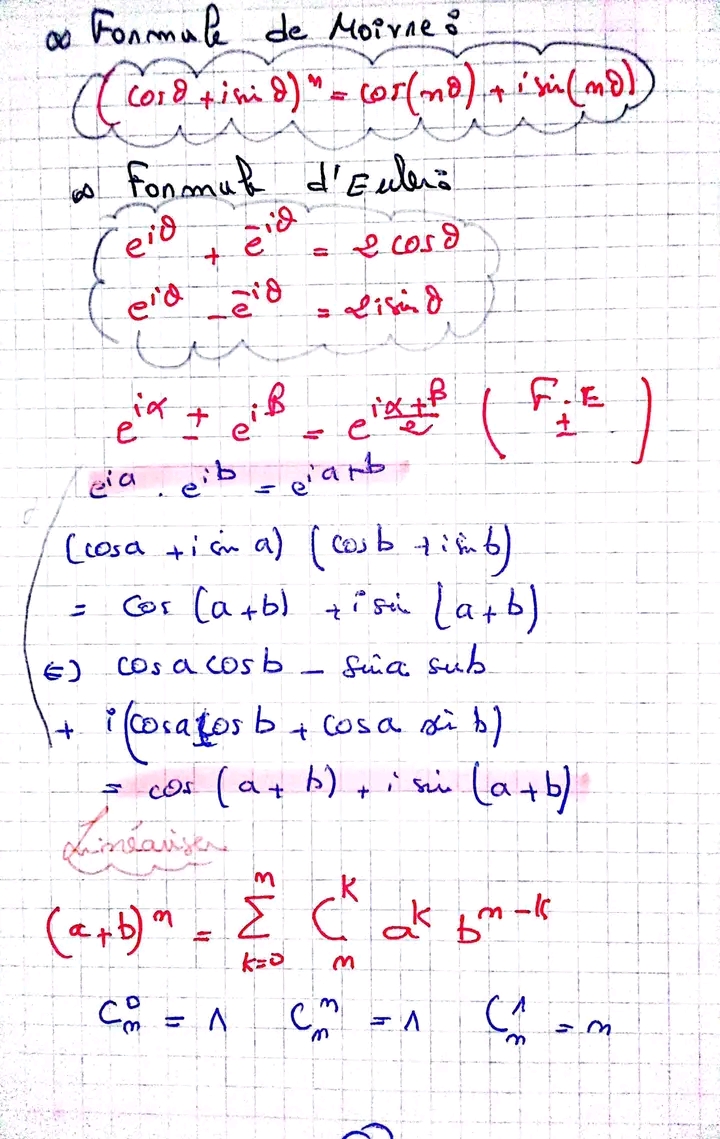 ∞ Formule de Moivre :
(cosθ + i sin θ)ⁿ = cos(nθ) + i sin(nθ)
∞ Formule d'Euler :
e^{iθ} + e^{-iθ} = 2 cosθ
e^{iθ} - e^{-iθ} = 2i sin θ
e^{iα} ± e^{iβ} = e^{i(α+β)/2} ( F.E ± )
e^{ia} . e^{ib} = e^{ia+b}
(cosa + i sin a) (cosb + i sin b)
= cos (a+b) + i sin (a+b)
⇔ cos a cos b - sin a sin b
+ i (cosa cos b + cosa sin b)
= cos (a + b) + i sin (a+b)
Linéariser
(a+b)ⁿ = Σ_{k=0}^{n} C_n^k a^k b^{n-k}
C_n^0 = 1 C_n^n = 1 C_n^1 = n